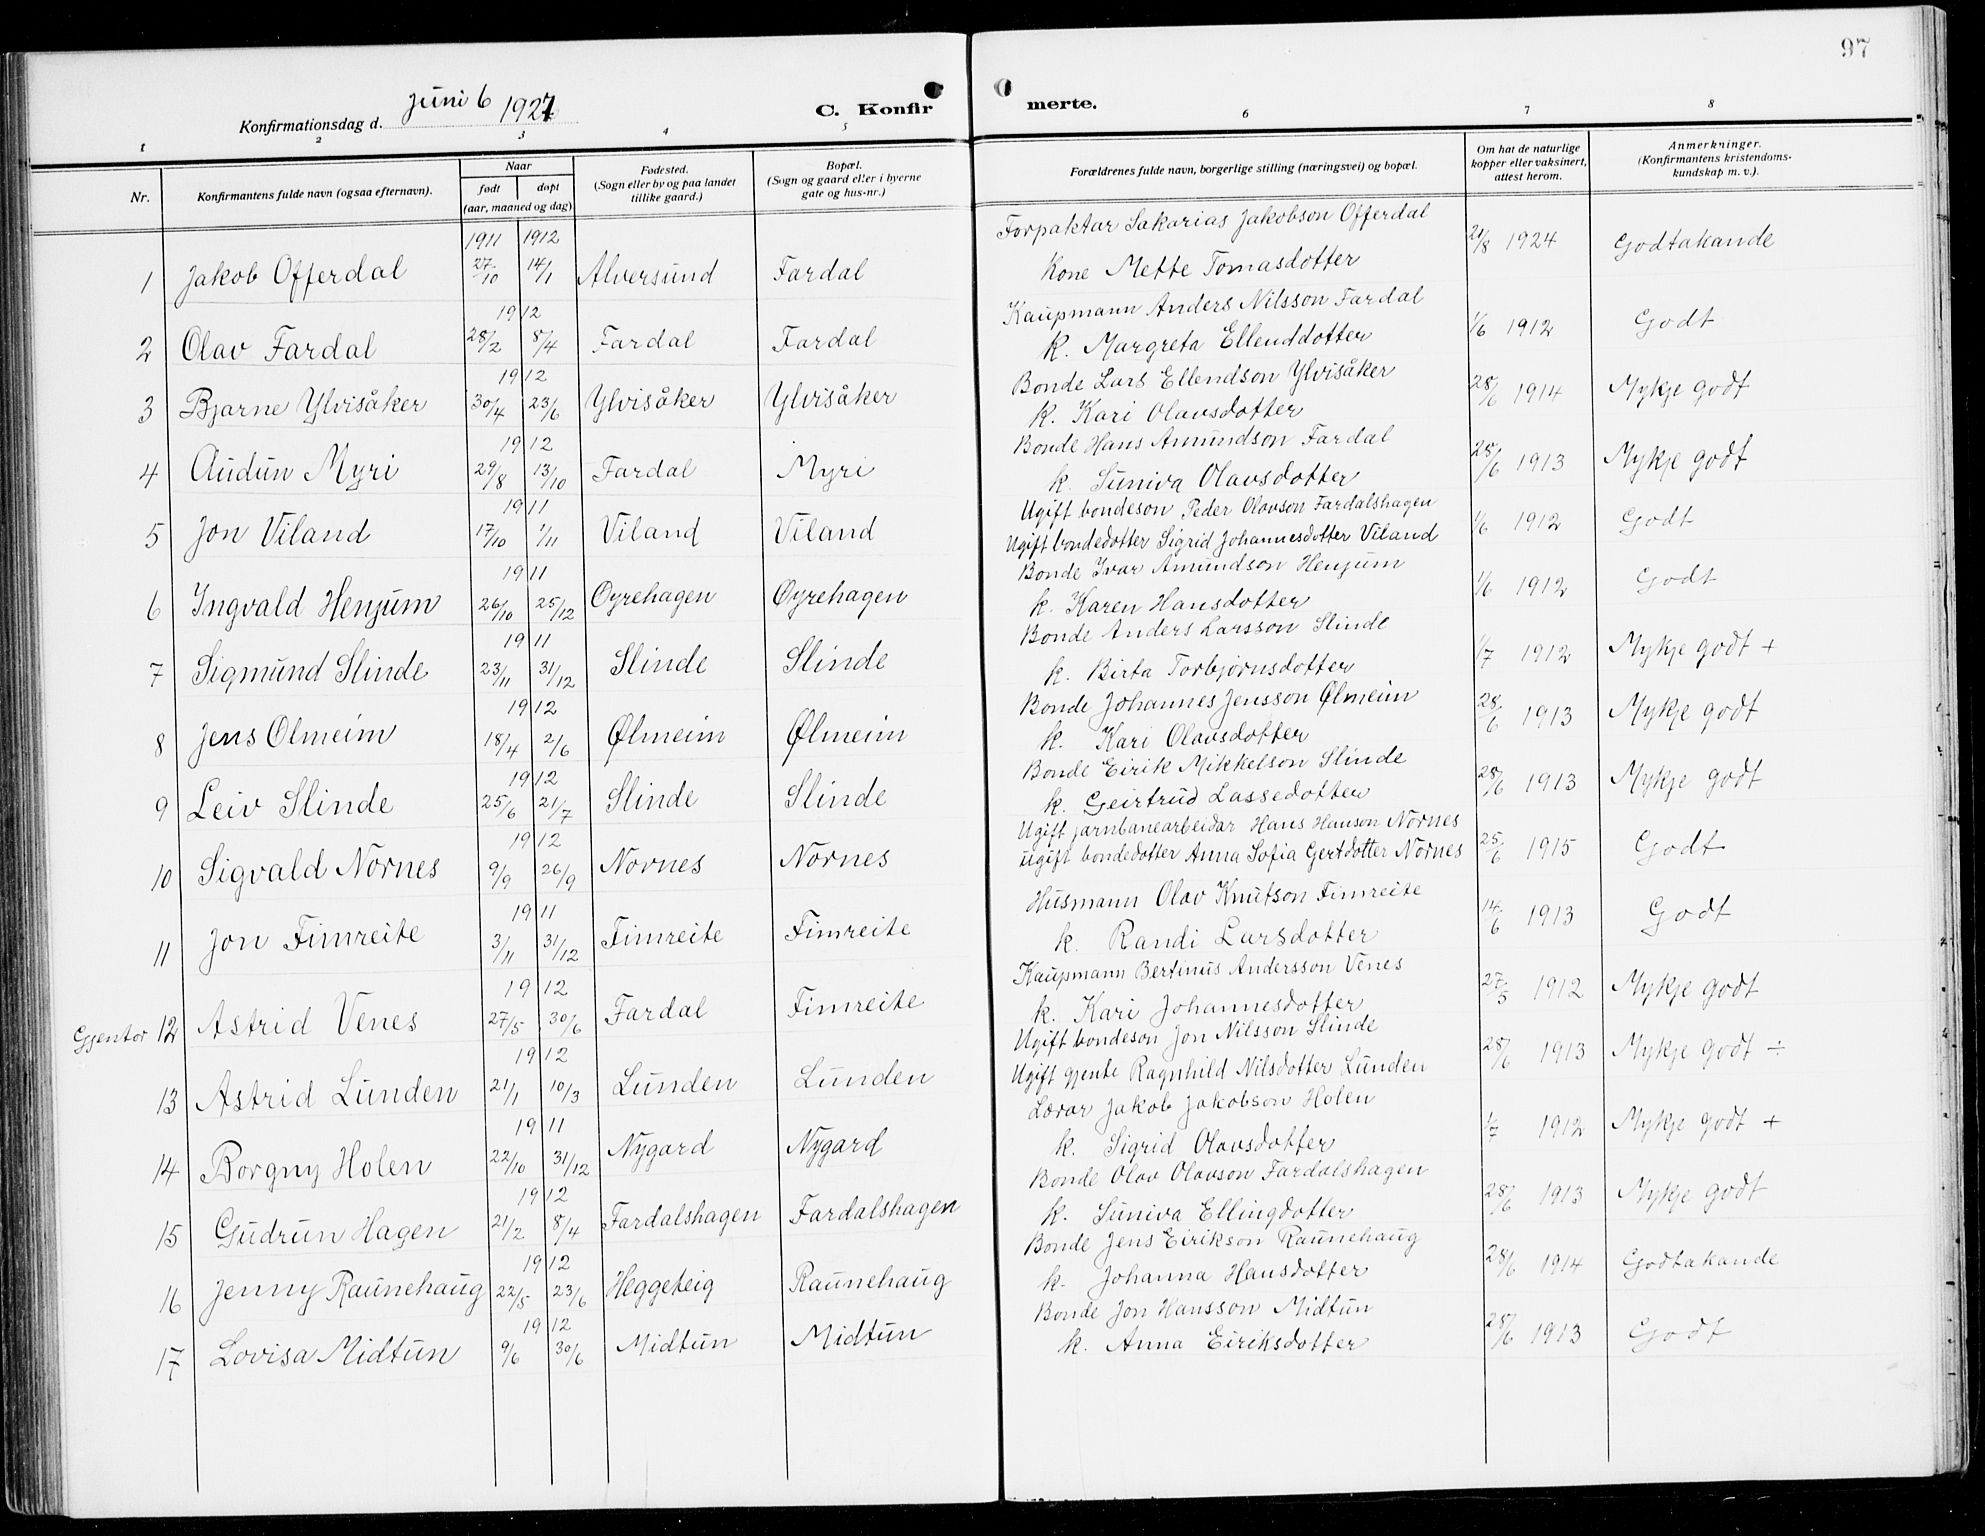 97
Konfirmationsdag d. juni 6 1927
C. Konfirmerte.
1 2 3 4 5 6 7 8
Nr. Konfirmantens fulde navn (ogsaa efternavn). Naar født døpt (aar, maaned og dag) Fødested. (Sogn eller by og paa landet tillike gaard.) Bopæl. (Sogn og gaard eller i byerne gate og hus-nr.) Forældrenes fulde navn, borgerlige stilling (næringsvei) og bopæl. Om hat de naturlige kopper eller vaksinert, attest herom. Anmerkninger. (Konfirmantens kristendomskundskap m. v.).
1911 1912 Forpaktar Sakarias Jakobson Offerdal
1 Jakob Offerdal 27/10 14/1 Alversund Fardal Kone Mette Tomasdotter 21/8 1924 Godtakande
1912 Kaupmann Anders Nilsson Fardal
2 Olav Fardal 28/2 8/4 Fardal Fardal k. Margreta Ellenddotter 1/6 1912 Godt
1912 Bonde Lars Ellendson Ylvisåker
3 Bjarne Ylvisåker 30/4 23/6 Ylvisåker Ylvisåker k. Kari Olavsdotter 28/6 1914 Mykje godt
1912 Bonde Hans Amundson Fardal
4 Audun Myri 29/8 13/10 Fardal Myri k. Suniva Olavsdotter 28/6 1913 Mykje godt
1911 Ugift bondeson Peder Olavson Fardalshagen
5 Jon Viland 17/10 1/11 Viland Viland Ugift bondedotter Sigrid Johannesdotter Viland 1/6 1912 Godt
1911 Bonde Ivar Amundson Henjum
6 Ingvald Henjum 26/10 25/12 Øyrehagen Øyrehagen k. Karen Hansdotter 1/6 1912 Godt
1911 Bonde Anders Larsson Slinde
7 Sigmund Slinde 23/11 31/12 Slinde Slinde k. Birta Torbjørnsdotter 1/7 1912 Mykje godt +
1912 Bonde Johannes Jensson Ølmeim
8 Jens Olmeim 18/4 2/6 Ølmeim Ølmeim k. Kari Olavsdotter 28/6 1913 Mykje godt
1912 Bonde Eirik Mikkelson Slinde
9 Leiv Slinde 25/6 21/7 Slinde Slinde k. Geirtrud Lassedotter 28/6 1913 Mykje godt
1912 Ugift jarnbanearbeidar Hans Hanson Nornes
10 Sigvald Nornes 9/9 26/9 Nornes Nornes ugift bondedotter Anna Sofia Gertdotter Nornes 25/6 1915 Godt
1911 Husmann Olav Knutson Fimreite
11 Jon Fimreite 3/11 31/12 Fimreite Fimreite k. Randi Larsdotter 14/6 1913 Godt
1912 Kaupmann Bertinus Andersson Venes
Gjentor 12 Astrid Venes 27/5 30/6 Fardal Fimreite k. Kari Johannesdotter 27/5 1912 Mykje godt
1912 Ugift bondeson Jon Nilsson Slinde
13 Astrid Lunden 21/1 10/3 Lunden Lunden Ugift gjente Ragnhild Nilsdotter Lunden 28/6 1913 Mykje godt ÷
1911 Lærar Jakob Jakobson Holen
14 Borgny Holen 22/10 31/12 Nygard Nygard k. Sigrid Olavsdotter 1/7 1912 Mykje godt +
1912 Bonde Olav Olavson Fardalshagen
15 Gudrun Hagen 21/2 8/4 Fardalshagen Fardalshagen k. Suniva Ellingdotter 28/6 1913 Mykje godt
1912 Bonde Jens Eirikson Raunehaug
16 Jenny Raunehaug 22/5 23/6 Heggeteig Raunehaug k. Johanna Hansdotter 28/6 1914 Godtakande
1912 Bonde Jon Hansson Midtun
17 Lovisa Midtun 9/6 30/6 Midtun Midtun k. Anna Eiriksdotter 28/6 1913 Godt